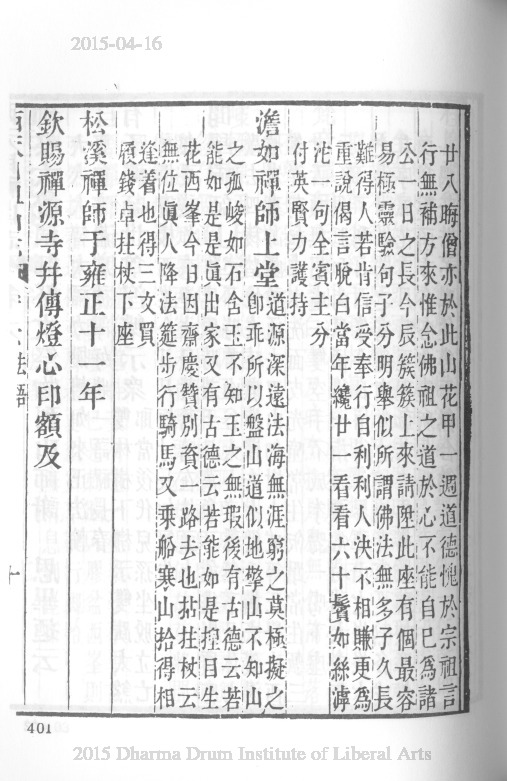 2015-04-16
廿入晦僧亦於此山花甲一週道德愧於宗祖言
行無補方來惟念佛祖之道於心不能自已為諸
公一日之長今辰簇簇上來請陞此座有個最容
易極靈驗句子分明舉似所謂佛法無多子久長
難得人若肯信受奉行自利利人決不相賺更為
重說偈言脫白當年纔廿一看看六十鬢如絲滹
沱一句全賓主分
付英賢力護持
澹如禪師上堂道源深遠法海無涯窮之莫極擬之
卽乖所以盤山道似地擎山不知山
之孤峻如石含玉不知玉之無瑕後有古德云若
能如是是眞出家又有古德云若能如是揑目生
花西峯今日因齋慶贊別資一路去也拈拄杖云
無位眞人降法筵步行騎馬又乘船寒山拾得相
逢着也得三文買
履錢卓拄杖下座
松溪禪師于雍正十一年
欽賜禪源寺幷傳燈心印額及
法語
十
401
2015 Dharma Drum Institute of Liberal Arts